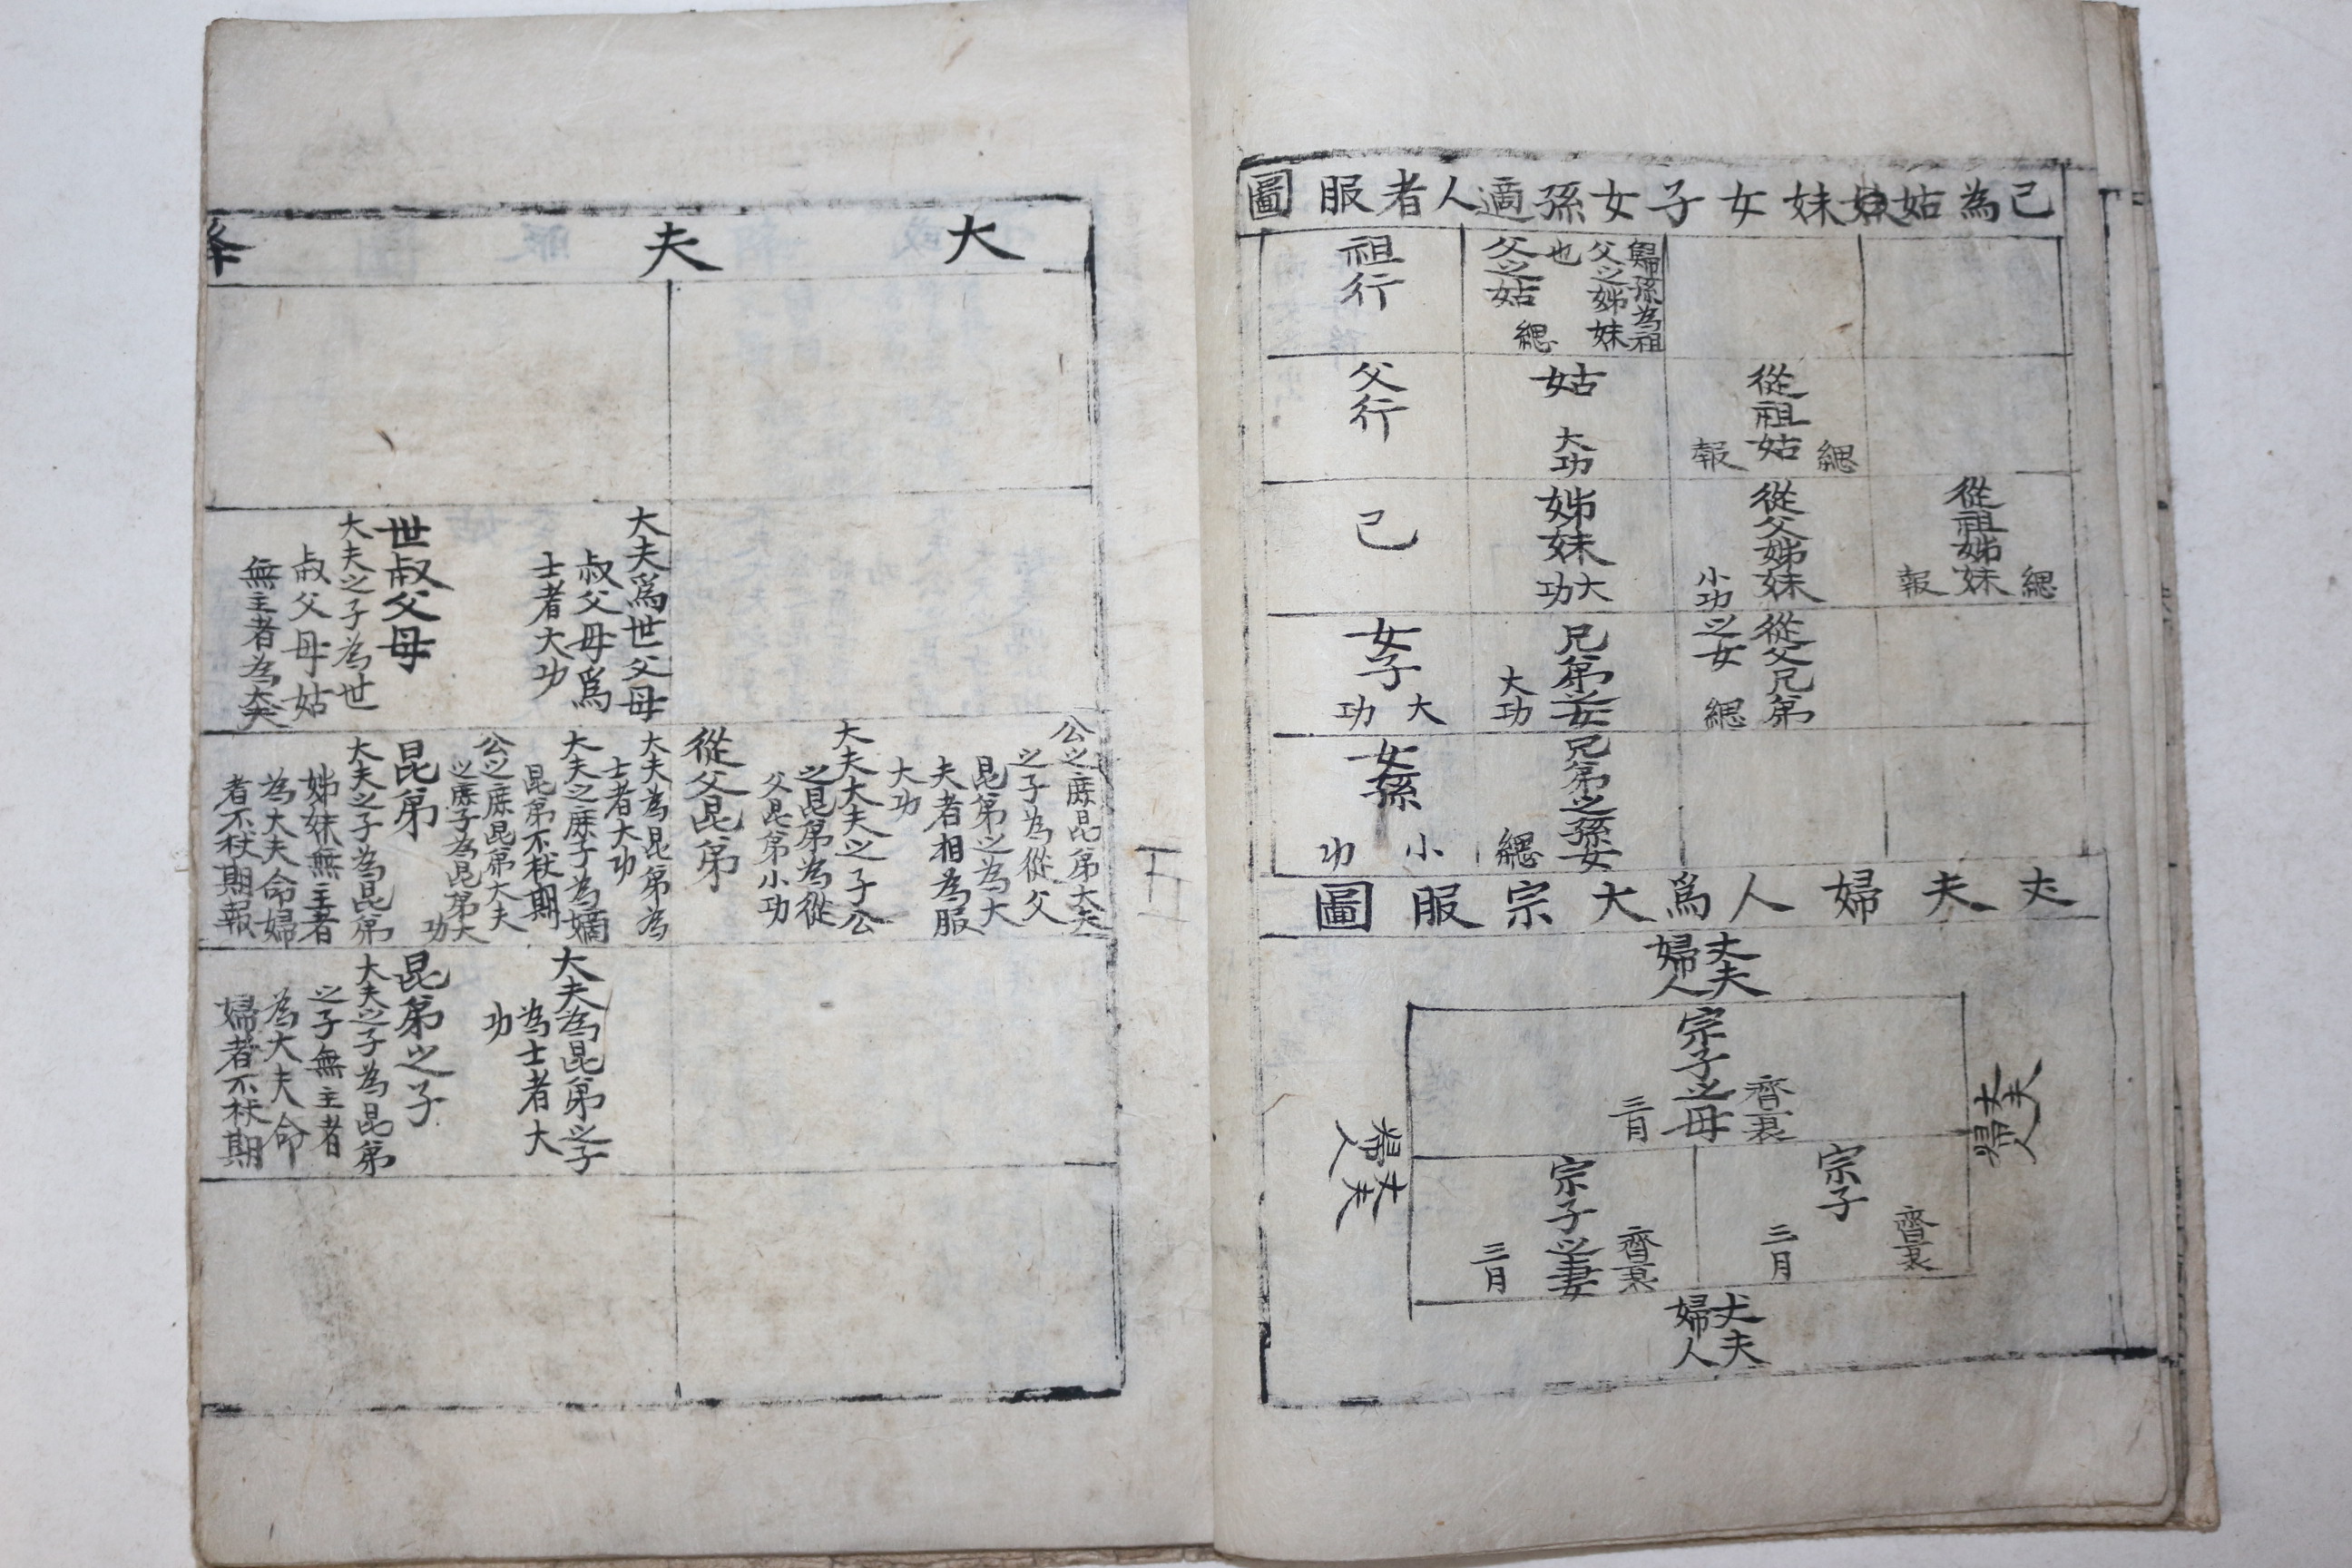 己為姑姊妹女子女孫適人者服圖
歸孫為祖
父之姊妹
也
父之姑
緦
祖行
從祖姑
緦
報
姑
大功
父行
從祖姊妹
緦
報
從父姊妹
小功
姊妹
大功
己
從父兄弟
之女
緦
兄弟之女
大功
女子
大功
兄弟之孫女
緦
女孫
小功
丈夫婦人爲大宗服圖
丈夫
婦人
宗子之母
齊衰
三月
宗子
齊衰
三月
宗子之妻
齊衰
三月
丈夫
婦人
丈夫
婦人
丈夫
婦人
大夫降
大夫爲世父母
叔父母爲
士者大功
世叔父母
大夫之子為世
叔父母姑
無主者為大夫
公之庶昆弟大夫
之子為從父
昆弟之為大
夫者相為服
大功
大夫大夫之子公
之昆弟為從
父昆弟小功
從父昆弟
大夫為昆弟為
士者大功
大夫之庶子為嫡
昆弟不杖期
公之庶昆弟大夫
之庶子為昆弟大
功
昆弟
大夫之子為昆弟
姊妹無主者
為大夫命婦
者不杖期報
大夫為昆弟之子
為士者大
功
昆弟之子
大夫之子為昆弟
之子無主者
為大夫命
婦者不杖期